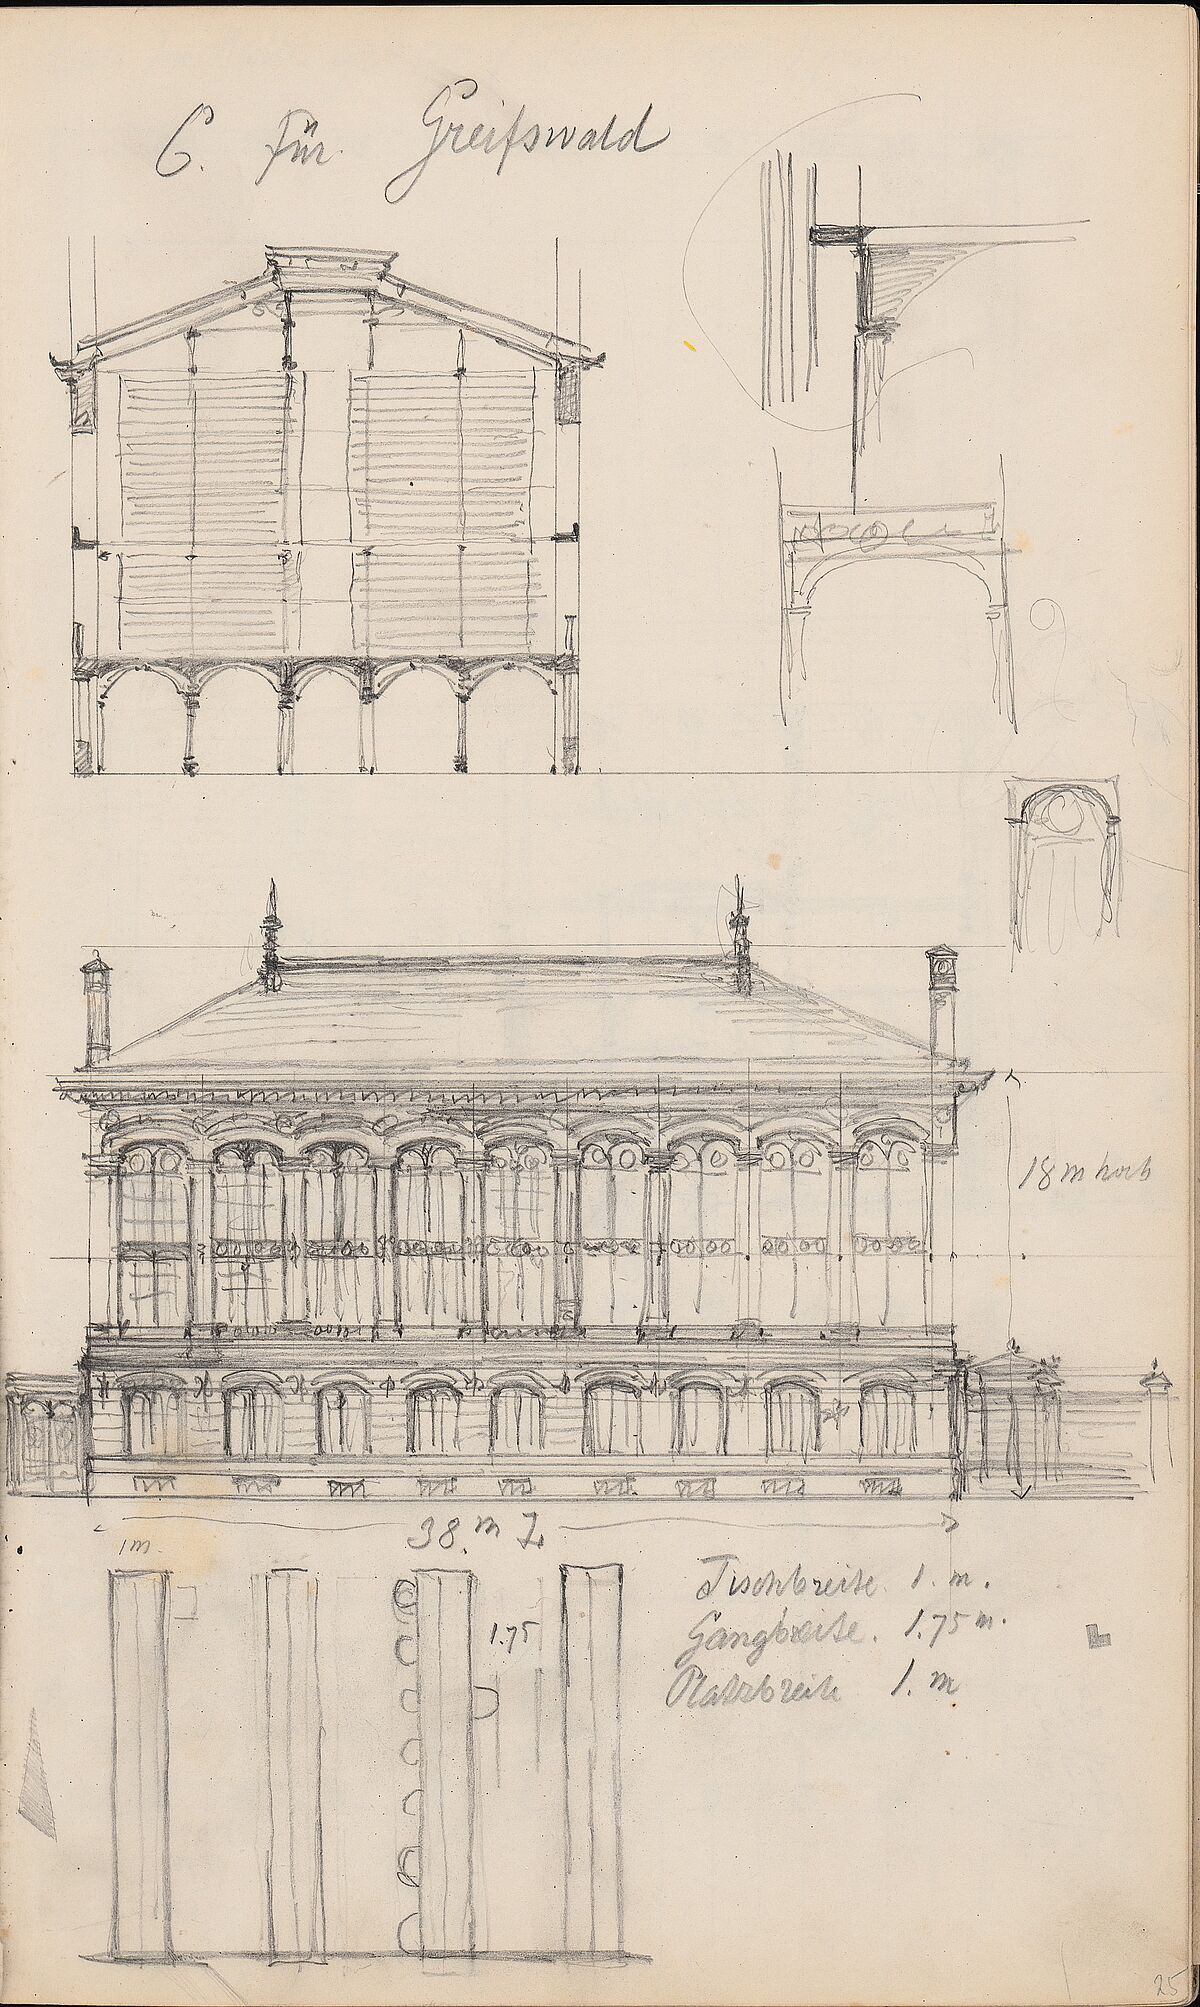 C. Für Greifswald
18 m hoch
38. m L.
1 m.
1.75
Tischbreite. 1. m.
Gangbreite. 1.75 m.
Platzbreite 1. m
25